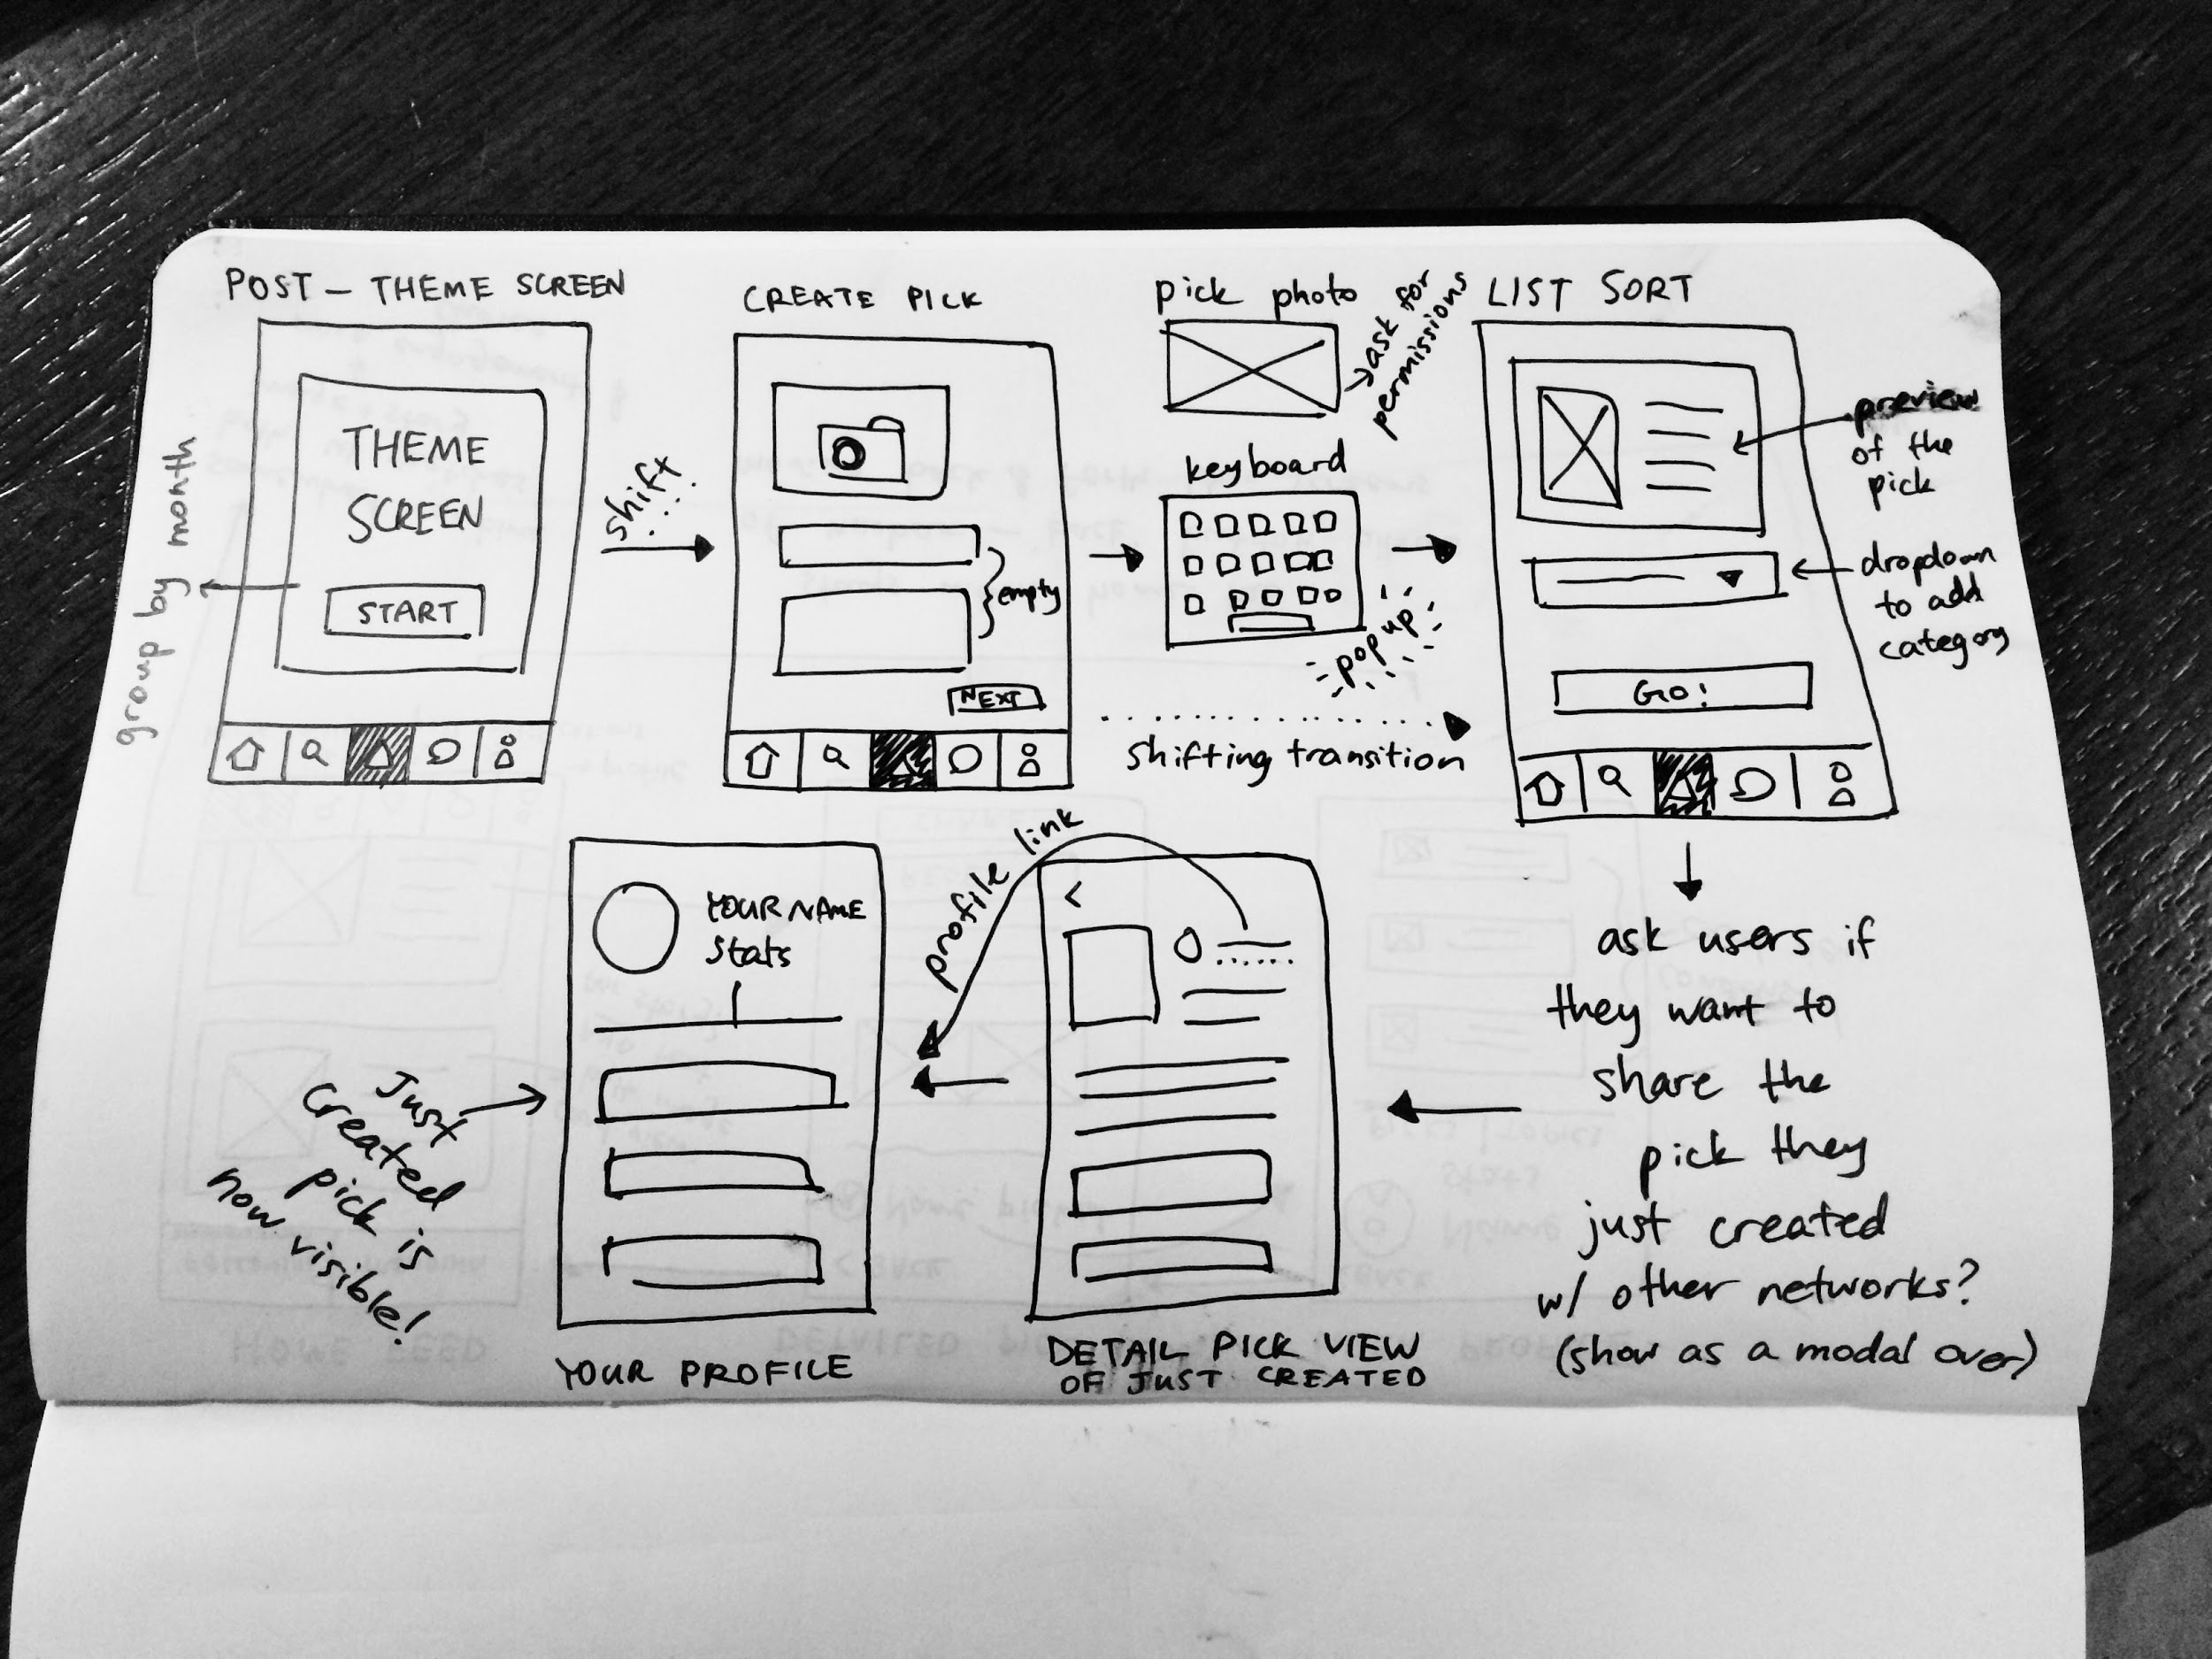 POST - THEME SCREEN
THEME
SCREEN
START
group by month
shift
CREATE PICK
empty
NEXT
pick photo
ask for
permissions
keyboard
pop up
shifting transition
LIST SORT
preview
of the
pick
dropdown
to add
category
GO!
ask users if
they want to
share the
pick they
just created
w/ other networks?
(show as a modal over)
DETAIL PICK VIEW
OF JUST CREATED
profile link
YOUR NAME
Stats
YOUR PROFILE
Just
created
pick is
now visible!